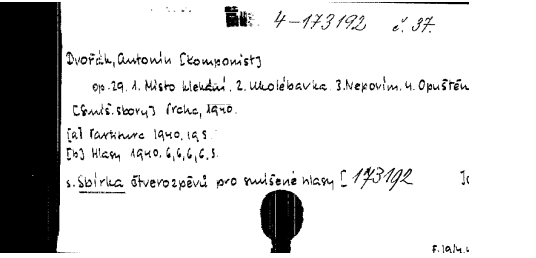 4-173192 č. 37.
Dvořák, Antonín [komponist]
op. 29. 1. Místo klekání. 2. Ukolébavka. 3. Nepovím. 4. Opuštěn
[Smíš. sbory] Praha, 1940.
[a] Partitura 1940, 19 S.
[b] Hlasy 1940, 6, 6, 6, 6, S.
s. Sbírka čtverozpěvů pro smíšené hlasy [ 173192